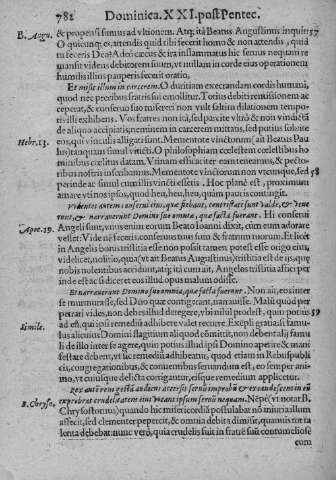 782 Dominica XXI. post Pentec.
B. Augu. & propensi sumus ad vltionem. Atq; ità Beatus Augustinus inquit: 57
O quicunq; es, attendis quid tibi fecerit homo & non attendis, quid
tu feceris Deo? Adeò cæcus & ira inflammatus hic seruus nequam re
mansit videns debitorem suum, vt nullam in corde eius operationem
humilis illius pauperis fecerit oratio.
Et misit illum in carcerem. O duritiem execrandam cordis humani,
quod nec precibus fratris sui emollitur. Totius debiti remissionem ac
ceperat, & conseruo suo misereri non vult saltim dilationem tempo-
ris illi exhibens. Vos fratres non ità, sed parcite vltrò & non vindictā
de aliquo accipiatis, neminem in carcerem mittatis, sed potius solute
Hebr. 13. eos, qui vinculis alligati sunt. Mementote vinctorum (ait Beatus Pau
lus) tanquam simul vincti. O philosophiam ecclestem cœlestibus ho
minibus cœlitus datam. Vtinam efficaciter eam teneamus, & pecto-
ribus nostris inscribamus. Mementote vinctorum non vtcunque, sed 58
perinde ac simul cum illis vincti essetis. Hoc planè est, proximum
amare vt nos ipsos, quod heu, heu, heu, quàm paucis contingit.
Videntes autem conserui eius, quæ fiebant, contristati sunt valdè, & vene
runt, & narrauerunt Domino suo omnia, quæ facta fuerant. Hi conserui
Apoc. 19. Angeli sunt, vnus enim eorum Beato Ioanni dixit, cum eum adorare
vellet: Vide nè feceris, conseruus tuus sum & fratrum tuorum. Et licet
in Angelis bonis tristitia esse non possit tamen potest esse origo eius,
videlicet, nolitio, quia (vt ait Beatus Augustinus) tristitia est de ijs, quæ
nobis nolentibus accidunt, atq; ità cum ait, Angelos tristitia affici per
inde est ac si diceret eos illud opus malum odisse.
Et narrauerunt Domino suo omnia, quæ facta fuerant. Non ait, eos inter
se murmurasse, sed Deo quæ contigerant, narrauisse. Malū quod per
petrari vides, non debes illud detegere, vbi nihil prodest, quin potius 59
Simile. ad est, qui ipsi remedium adhibere valet recurre. Exēpli gratia: si famu-
lus alicuius Domini flagitium aliquod cōmittit, non debet alij famu
li de illo inter se agere, quin potius illud ipsi Domino aperire & mani
festare debent, vt hic remedium adhibeatur, quod etiam in Rebuspubli
cis, congregationibus, & conuentibus seruandum est, eo semper ani-
mo, vt cuiusque delicta corrigantur, eisque remedium applicetur.
B. Chryso. exprobrat crudelitatem eius vocans ipsum seruum nequam. Nēpè (vt notat B.
Chrysostomus) quando hic misericordiā postulabat nō iniuria illum
affecit, sed clementer pepercit, & omnia debita dimisit, quamuis tot ta
lenta debebat: nunc verò, quia crudelis fuit in fratrē suū contumeliose
eum